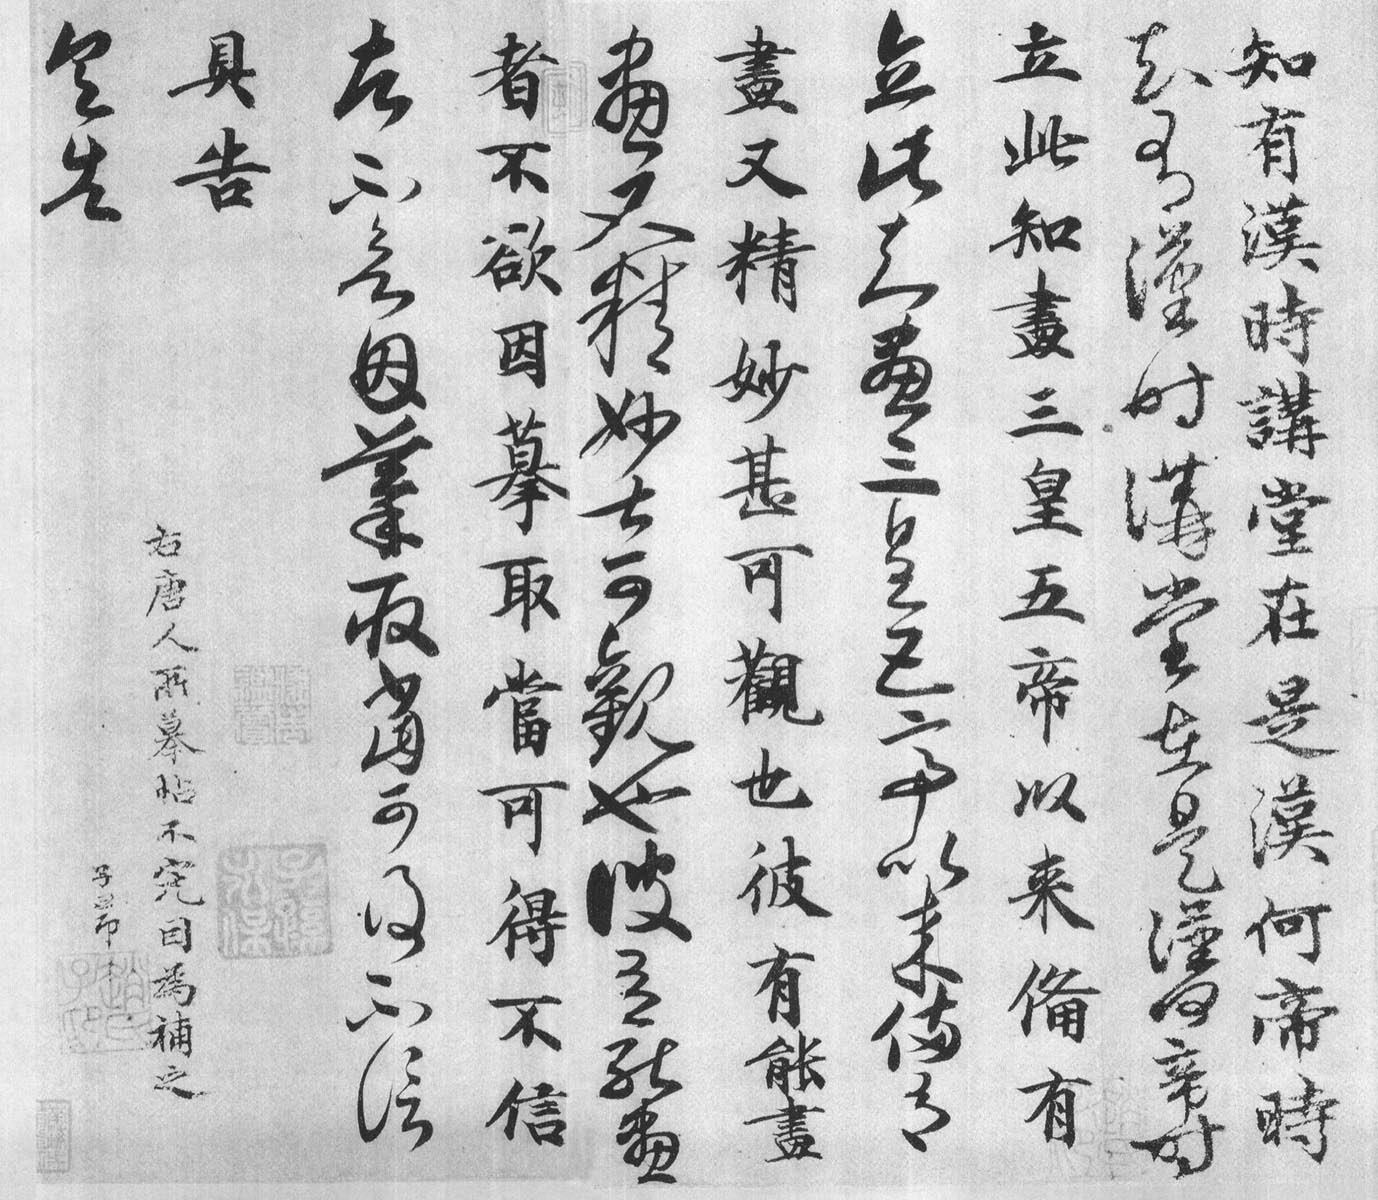 知有漢時講堂在是漢何帝時
知有漢時講堂在是漢何帝時
立此知畫三皇五帝以来備有
立此知畫三皇五帝以来備有
畫又精妙甚可觀也彼有能畫
畫又精妙甚可觀也彼有能畫
者不欲因摹取當可得不信
者不欲因摹取當可得不信
具告
具告
右唐人所摹帖不完因為補之
子昂
子孫永保
趙氏子昂